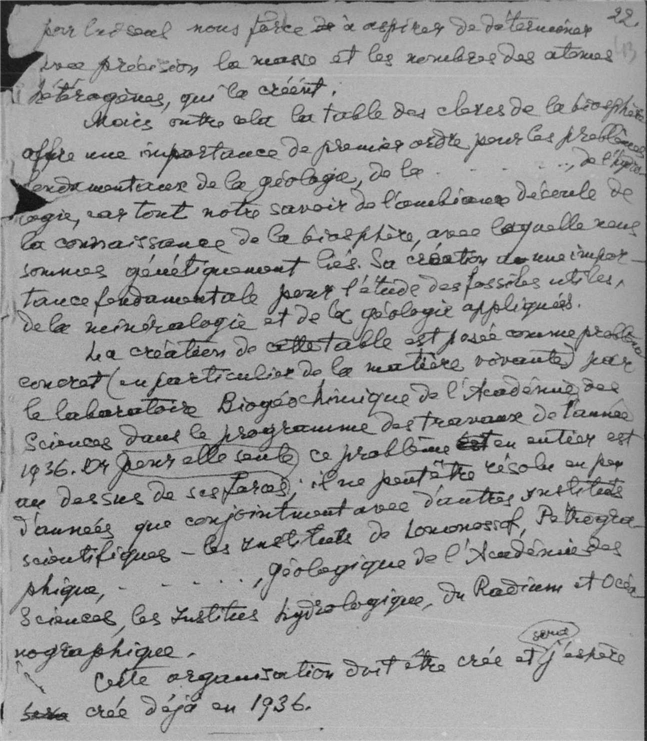 22
par lui seul nous force à aspirer de déterminer
avec précision la masse et les nombres des atomes
hétérogènes, qui la créent.
Mais outre cela la table des claves de la biosphère
offre une importance de premier ordre pour les problèmes
fondamentaux de la géologie, de la . . . . . ., de l'hydro
logie, car tout notre savoir de l'ambiance découle de
la connaissance de la biosphère, avec laquelle nous
sommes génétiquement liés. Sa création a une impor-
tance fondamentale pour l'étude des fossiles utiles,
de la minéralogie et de la géologie appliqués.
La création de cette table est posée comme problème
concret (en particulier de la matière vivante) par
le laboratoire Biogéochimique de l'Académie des
Sciences dans le programme des travaux de l'année
1936. Or pour elle seule ce problème est en entier est
au dessus de ses forces; il ne peut être résolu en peu
d'années que conjointment avec d'autres instituts
scientifiques – les instituts de Lomonossof, Pétrogra-
phique, . . . . . . ., géologique de l'Académie des
Sciences, les instituts hydrologique, du Radium et Océa-
nographique.
sera
Cette organisation doit être crée et j'espère
sera crée déjà en 1936.